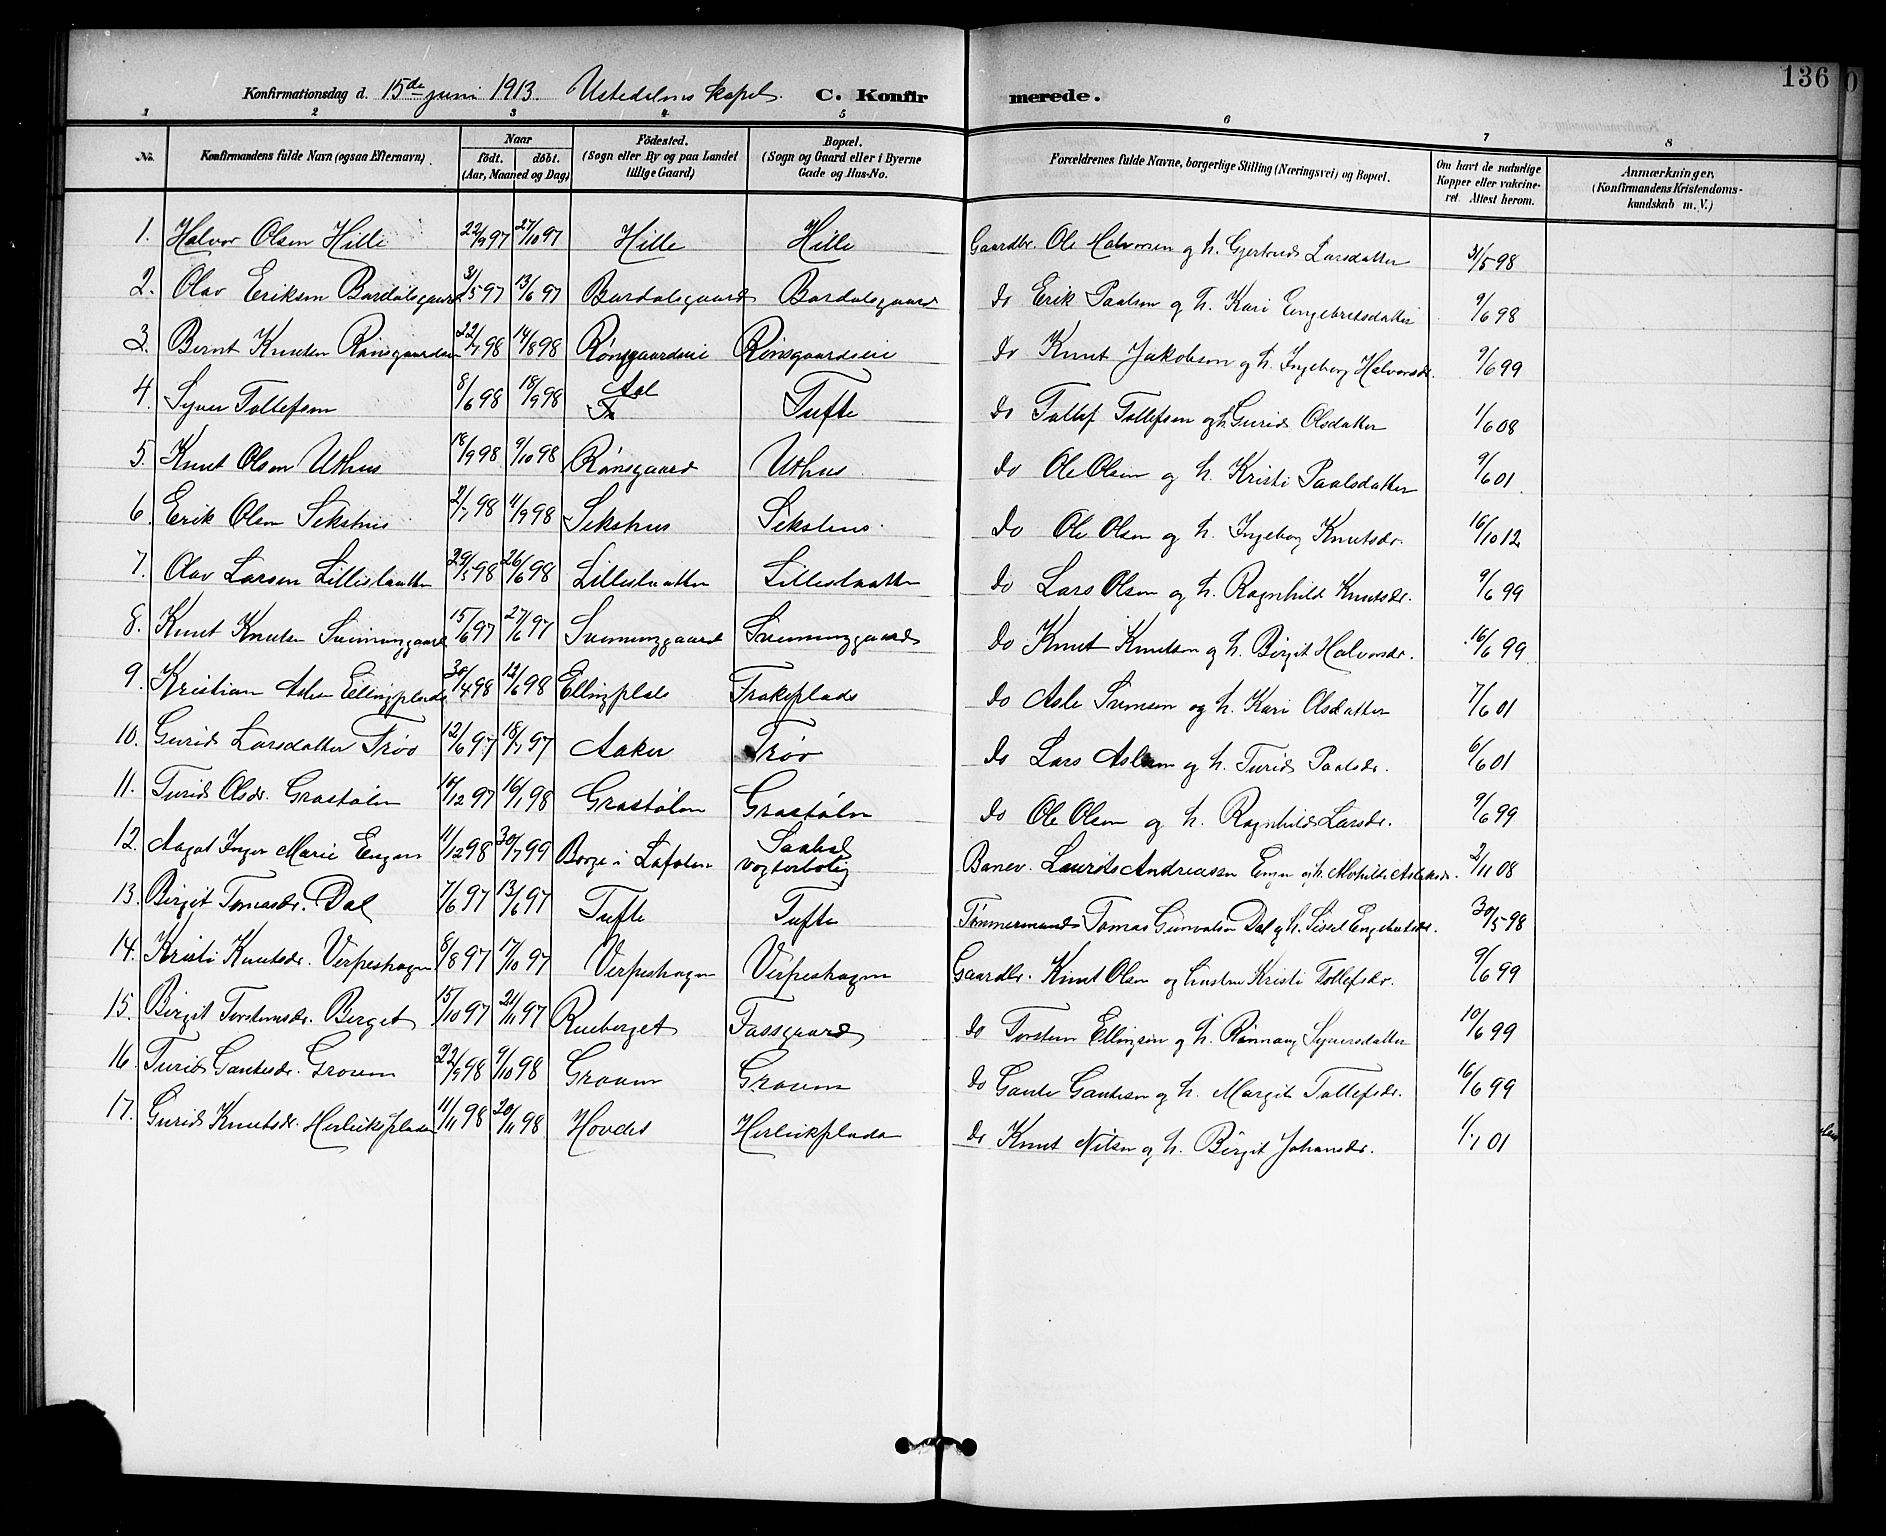 136
Konfirmationsdag d. 15de juni 1913. Ustedalens kapel. C. Konfirmerede.
1 2 3 4 5 6 7 8
No. Konfirmandens fulde Navn (ogsaa Efternavn). Naar födt. döbt. (Aar, Maaned og Dag) Födested. (Sogn eller By og paa Landet tillige Gaard) Bopæl. (Sogn og Gaard eller i Byerne Gade og Hus-No. Forældrenes fulde Navne, borgerlige Stilling (Næringsvei) og Bopæl. Om havt de naturlige Kopper eller vakcineret. Attest herom. Anmærkninger. (Konfirmandens Kristendomskundskab m. V.)
1. Halvor Olsen Hille 22/9 97 27/10 97 Hille Hille Gaardbr. Ole Halvorsen og h. Gjertrud Larsdatter 31/5 98
2. Olav Eriksen Bardalsgaard 31/5 97 13/6 97 Bardalsgaard Bardalsgaard do Erik Paalsen og h. Kari Engebretsdatter 9/6 98
3. Bernt Knutsen Rønsgaardseie 22/7 98 14/8 98 Rønsgaardseie Rønsgaardseie do Knut Jakobsen og h. Ingeborg Halvorsdr. 9/6 99
4. Syver Tollefsen 8/6 98 18/9 98 Aal Tufte do Tollef Tollefsen og h. Gurid Olsdatter 1/6 08
5. Knut Olsen Uthus 18/9 98 9/10 98 Rønsgaard Uthus do Ole Olsen og h. Kristi Paalsdatter 9/6 01
6. Erik Olsen Sekshus 2/7 98 11/9 98 Sekshus Sekshus. do Ole Olsen og h. Ingeborg Knutsdr. 16/10 12
7. Olav Larsen Lilleslaatten 29/5 98 26/6 98 Lilleslaatten Lilleslaatten do Lars Olsen og h. Ragnhild Knutsdr. 9/6 99
8. Knut Knutsen Svenninggaard 15/6 97 27/6 97 Svenninggaard Svenninggaard do Knut Knutsen og h. Birgit Halvorsdr. 16/6 99
9. Kristian Aslesen Ellingplads 30/4 98 12/6 98 Ellingplads Trakeplads do Asle Svensen og h. Kari Olsdatter 7/6 01
10. Gurid Larsdatter Trøo 12/6 97 18/7 97 Aaker Trøo do Lars Aslesen og h. Turid Paalsdr. 6/6 01
11. Turid Olsdr. Grostølen 16/12 97 16/1 98 Grostølen Grostølen do Ole Olsen og h. Ragnhild Larsdr. 9/6 99
12. Aagot Inger Marie Engen 11/12 98 30/7 99 Borge i Lofoten vogterbolig Banev. Laurits Andreassen Engen og h. 2/11 08
13. Birgit Tomasdr. Dal 7/6 97 13/6 97 Tufte Tufte Tømmermand Tomas Gunvalsen Dal og h. Sissel Engebretsdr. 30/5 98
14. Kristi Knutsdr. Verpeshagen 8/8 97 17/10 97 Verpeshagen Verpeshagen Gaardbr. Knut Olsen og hustru Kristi Tollefsdr. 9/6 99
15. Birgit Torstensdr. Berget 15/10 97 21/11 97 Rueberget Fassgaard do Torsten Ellingsen og h. Rønnaug Syversdatter 10/6 99
16. Turid Gautesdr. Groven 22/9 98 9/10 98 Groven Groven do Gaute Gautesen og h. Margit Tollefsdr. 16/6 99
17. Gurid Knutsdr. Herleiksplads 11/11 98 20/11 98 Hovdet Herleikplads do Knut Nilsen og h. Birgit Johansdr. 1/1 01